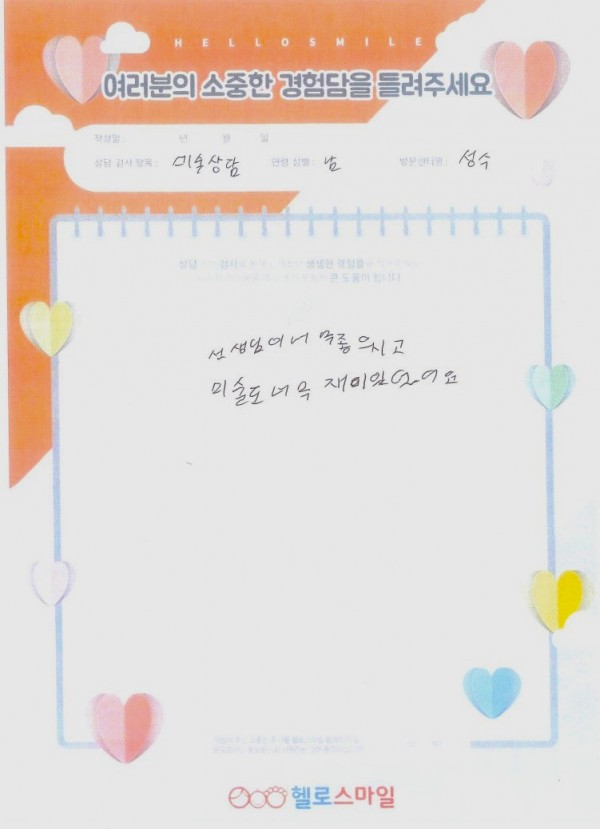 HELLOSMILE
여러분의 소중한 경험담을 들려주세요
작성일 : 년 월 일
상담 검사 항목 : 미술상담 연령 성별 : 남 방문센터명 : 성수
상담 검사 생생한 경험을
큰 도움이 됩니다
선생님이 너무 좋으시고
미술도 너무 재미있었어요
헬로스마일